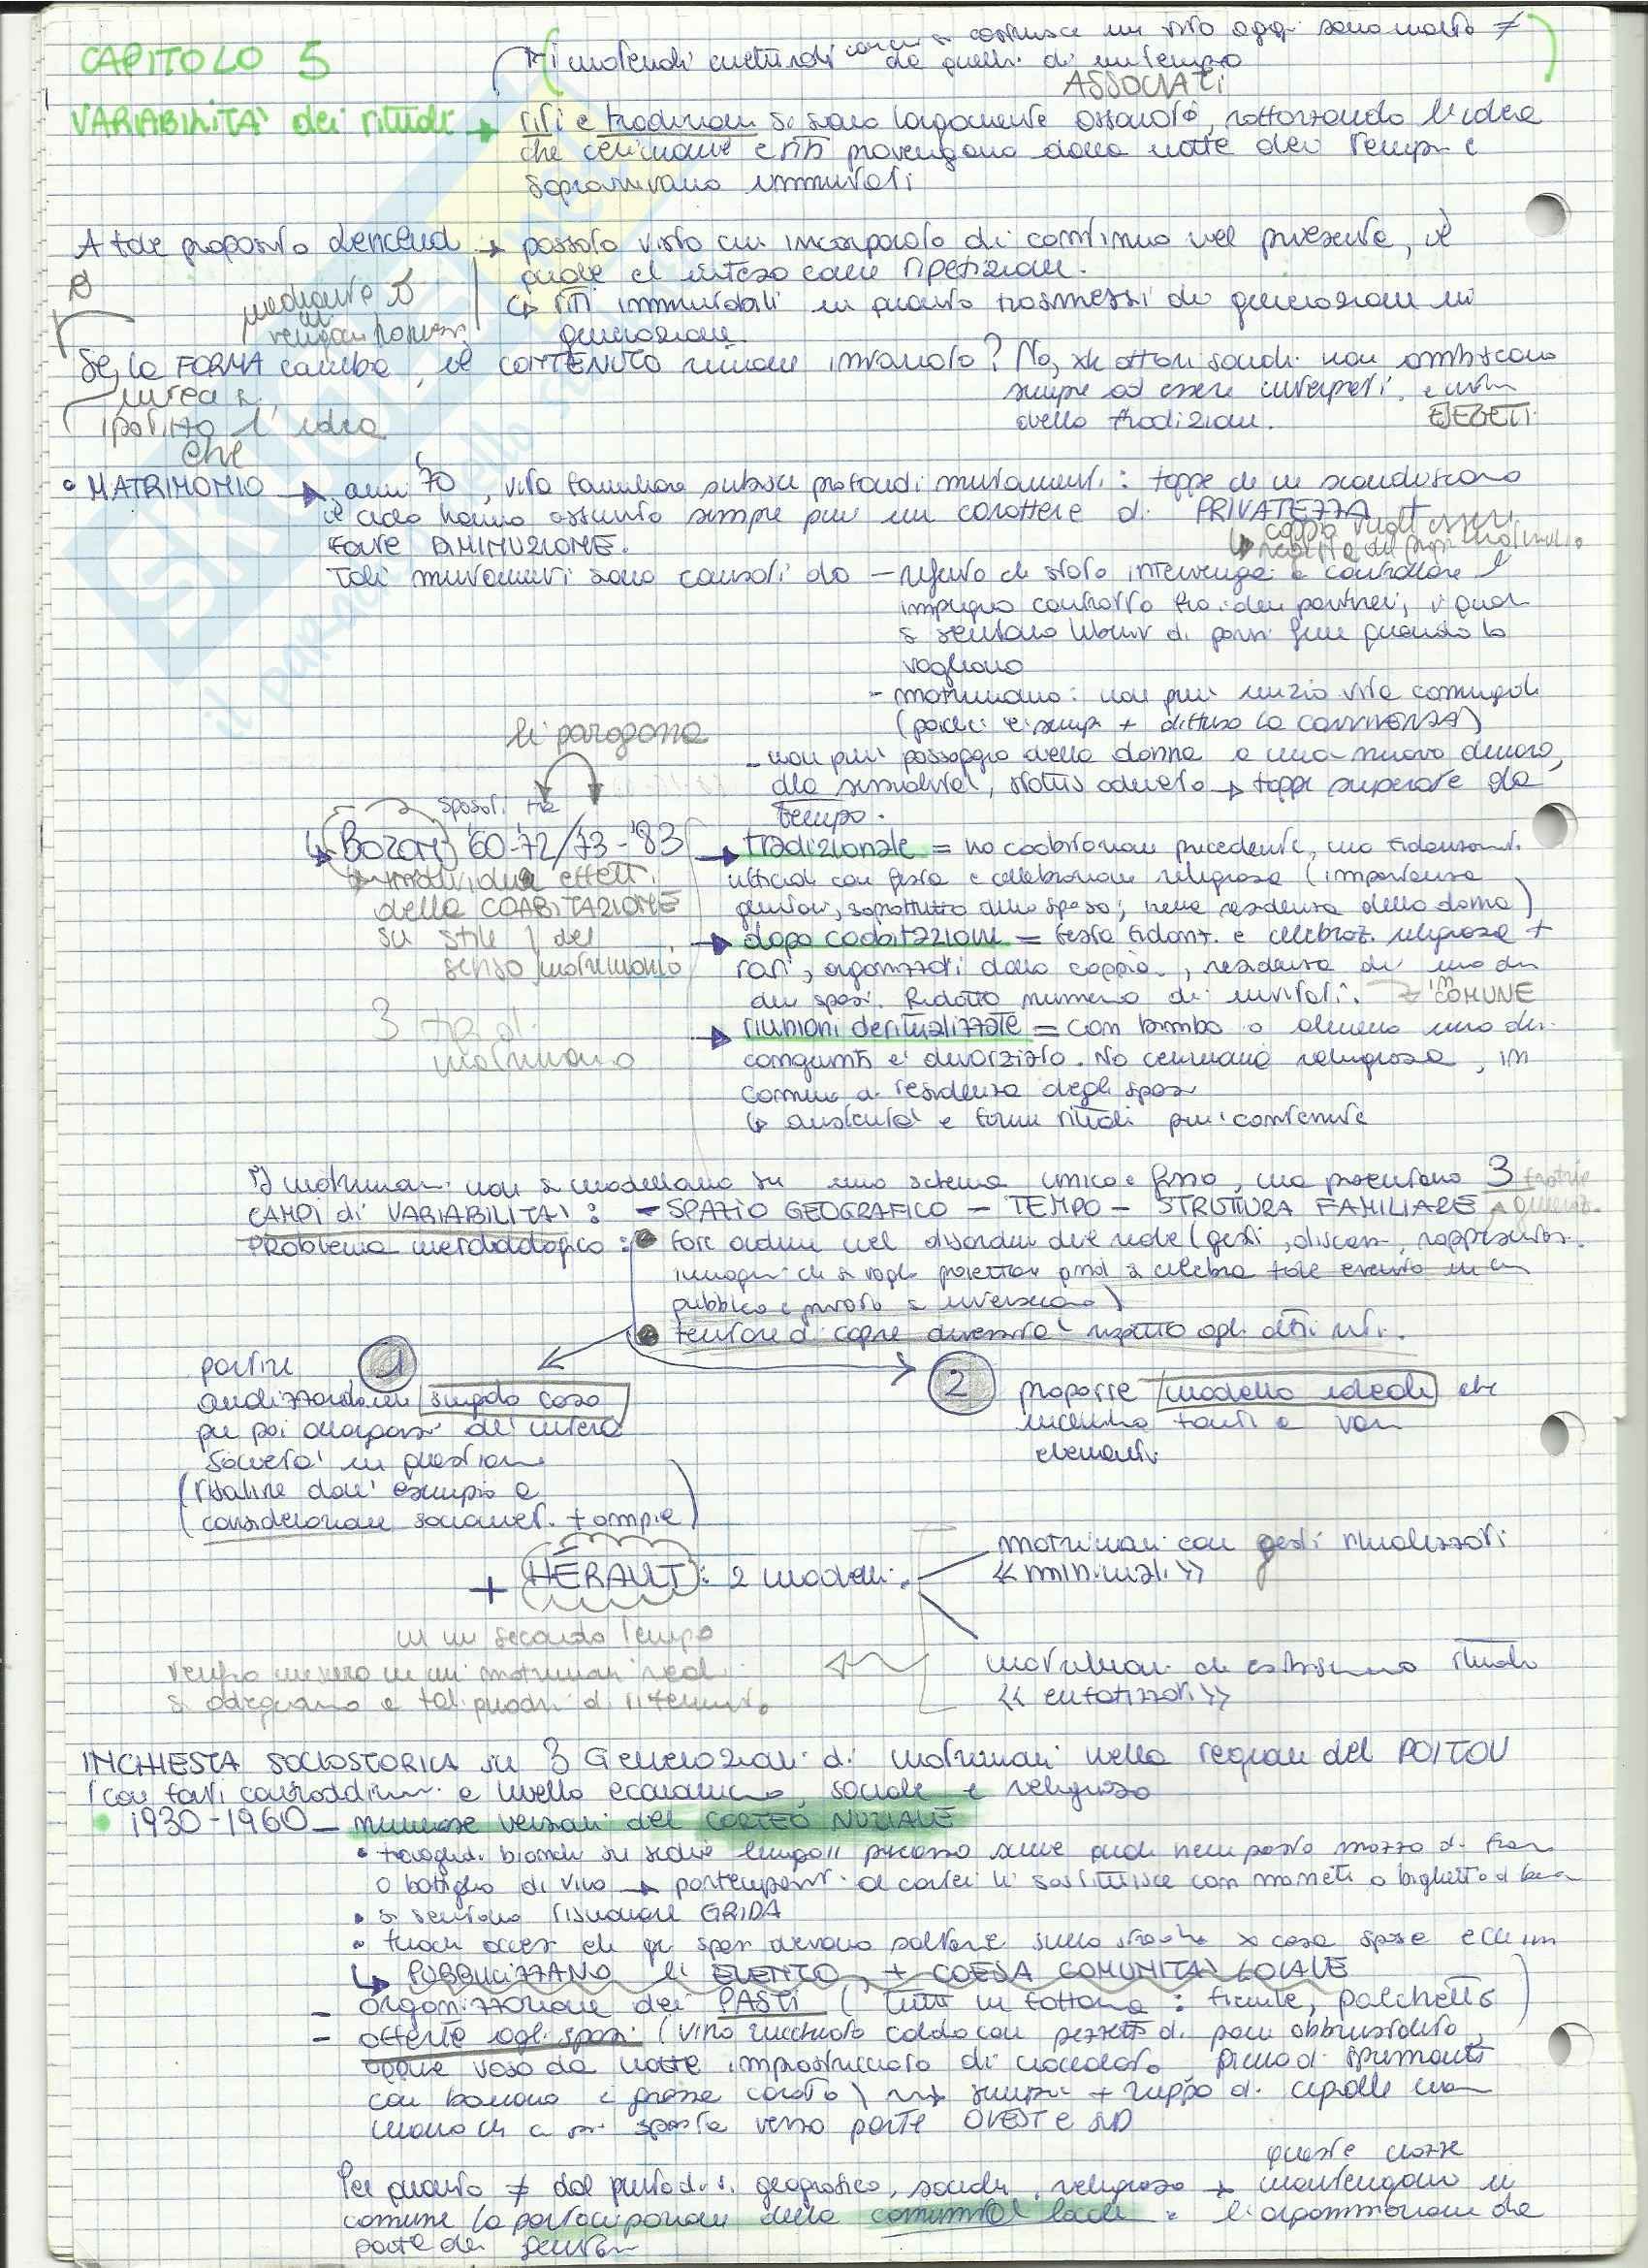 CAPITOLO 5
I materiali culturali con cui si costruisce un rito oggi sono molto ≠
da quelli di un tempo
ASSOCIATI
VARIABILITA' dei rituali → riti e tradizioni si sono largamente associati, rafforzando l'idea
che cerimonie e riti provengano dalla notte dei tempi e
sopravvivano immutati
A tale proposito Lenclud → passato visto cui incorporato di continuo nel presente, il
quale è inteso come ripetizione.
↳ riti immutabili in quanto trasmessi da generazione in
generazione
mediante
vengan trasmessi
Se la FORMA cambia, il CONTENUTO rimane invariato? No, xk attori sociali non ambiscono
sempre ad essere interpreti
della tradizione.
ESEGETI
ipotizza l'idea
che
• MATRIMONIO → anni '70, vita familiare subisce profondi mutamenti: tappe che ne scandiscono
il ciclo hanno assunto sempre più un carattere di PRIVATEZZA +
forte DIMINUZIONE.
coppia vuol essere
regista del proprio matrimonio
Tali mutamenti sono causati da – rifiuto che stato intervenga a controllare l'
impegno contratto tra i due partner, i quali
si sentono liberi di porvi fine quando lo
vogliono
- matrimonio: non più inizio vita coniugale
(poiché è sempre + diffusa la CONVIVENZA)
- non più passaggio della donna a una nuova dimora,
alla sessualità, status adulto → tappe superate da
tempo.
li paragona
sposati tra
↳ Bozon '60-72/73-'83
individua effetti
della COABITAZIONE
su stile / del
senso matrimonio
3 tipi di
matrimonio
→ tradizionale = no coabitazione precedente, ma fidanzam.
ufficiale con festa e celebrazione religiosa (importanza
genitori, soprattutto dello sposo; nella residenza della donna)
→ dopo coabitazione = festa fidanz. e celebraz. religiosa +
rari, organizzati dalla coppia, residenza di uno dei
due sposi. Ridotto numero di invitati.
in COMUNE
→ riunioni deritualizzate = con bimbo o almeno uno dei
congiunti è divorziato. No cerimonia religiosa, in
comune di residenza degli sposi
↳ austerità e forme rituali più contenute
I matrimoni non si modellano su uno schema unico e fisso, ma presentano 3
CAMPI di VARIABILITA': – SPAZIO GEOGRAFICO – TEMPO – STRUTTURA FAMILIARE
PROBLEMA metodologico: • fare ordine nel disordine del reale (gesti, discorsi, rappresentaz.
immagini che si vogliono proiettare qnd si celebra tale evento in cui
pubblico e privato si intersecano)
• tentare di capire diversità rispetto agli altri riti.
1 partire
analizzando un singolo caso
per poi allargarsi all'intera
società in questione
(risalire dall'esempio a
considerazioni sociali + ampie)
2 proporre modello ideale che
racchiuda tanti e vari
elementi.
+ HÉRAULT: 2 modelli:
matrimoni con gesti ritualizzati
«minimali»
matrimoni che esibiscono rituale
«enfatizzati»
in un secondo tempo
verifica in cui matrimoni reali
si adeguano a tali quadri di riferimento.
INCHIESTA SOCIOSTORICA su 3 Generazioni di matrimoni nella regione del POITOU
(con forti contraddizioni a livello economico, sociale e religioso
• 1930-1960 – numerose versioni del CORTEO NUZIALE
• tovaglie bianche su sedie lungo il percorso sulle quali viene posto mazzo di fiori
o bottiglia di vino → partecipanti al corteo li sostituisce con moneta o biglietto
• si sentono risuonare GRIDA
• fuochi accesi che gli sposi devono saltare sulla strada x casa sposi
↳ PUBBLICIZZANO EVENTO, + COESA COMUNITA' LOCALE
– organizzazione dei PASTI (tutti in fattoria: fienile, palchetto)
– offerte agli sposi (vino zuccherato caldo con pezzetti di pane abbrustolito,
oppure vaso da notte impiastricciato di cioccolato pieno di spumante
con banana e grossa carota) → sempre + zuppa di cipolle man
mano che ci si sposta verso parte OVEST e SUD
Per quanto ≠ dal punto di v. geografico, sociale, religioso → queste nozze mantengono in
comune la partecipazione della comunità locale e l'organizzazione da
parte dei genitori